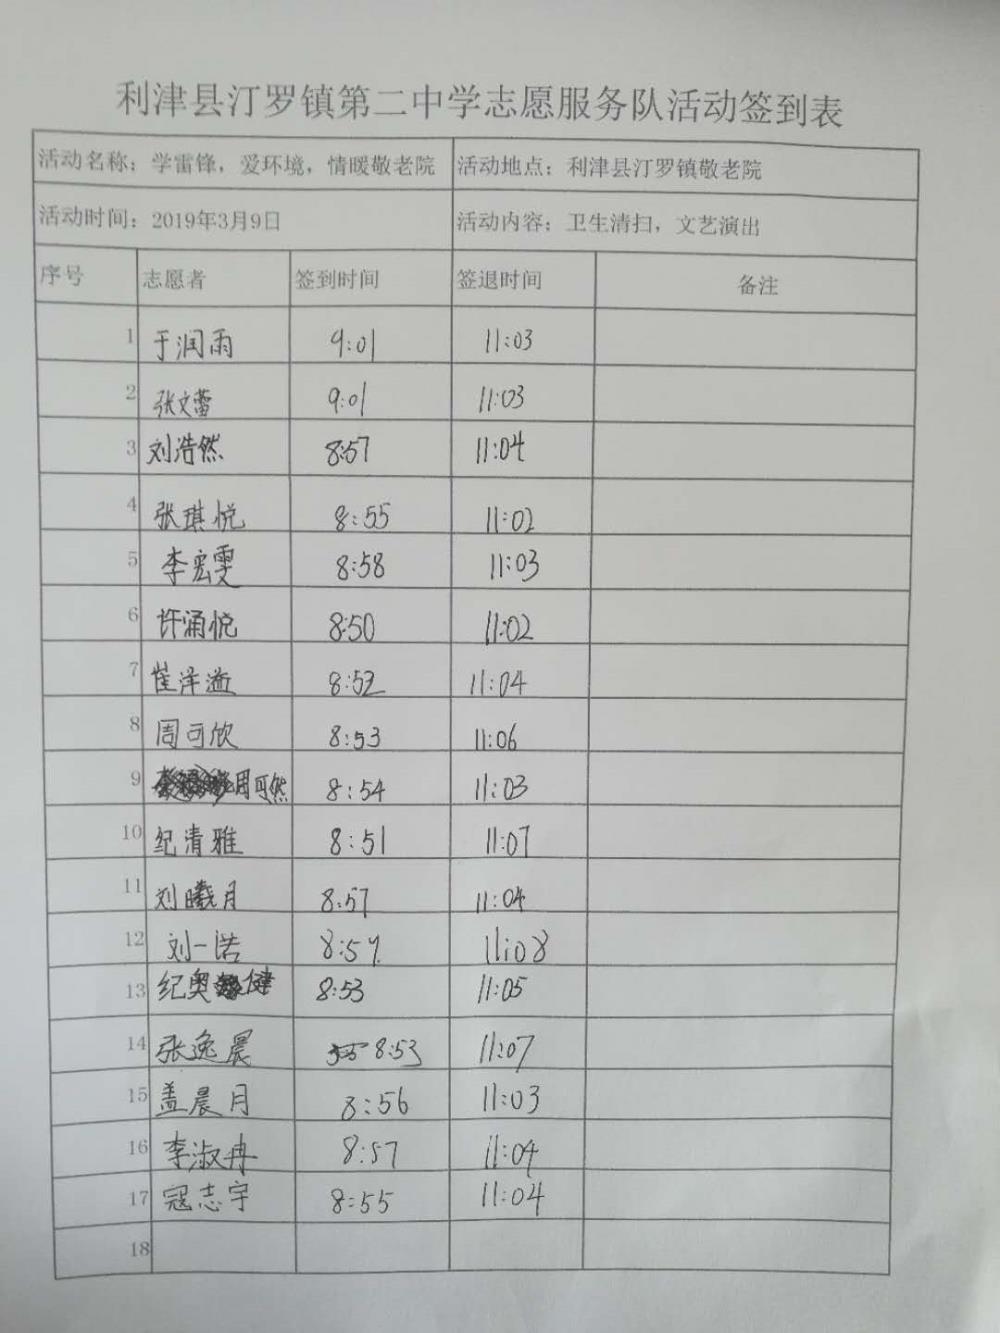 利津县汀罗镇第二中学志愿服务队活动签到表
活动名称：学雷锋，爱环境，情暖敬老院 活动地点：利津县汀罗镇敬老院
活动时间：2019年3月9日 活动内容：卫生清扫，文艺演出
序号 志愿者 签到时间 签退时间 备注
1 于润雨 9:01 11:03
2 张文蕾 9:01 11:03
3 刘浩然 8:57 11:04
4 张琪悦 8:55 11:02
5 李宏雯 8:58 11:03
6 许涌悦 8:50 11:02
7 崔泽溢 8:52 11:04
8 周可欣 8:53 11:06
9 周可然 8:54 11:03
10 纪清雅 8:51 11:07
11 刘曦月 8:57 11:04
12 刘一诺 8:57 11:08
13 纪奥健 8:53 11:05
14 张逸晨 8:53 11:07
15 盖晨月 8:56 11:03
16 李淑冉 8:57 11:04
17 寇志宇 8:55 11:04
18